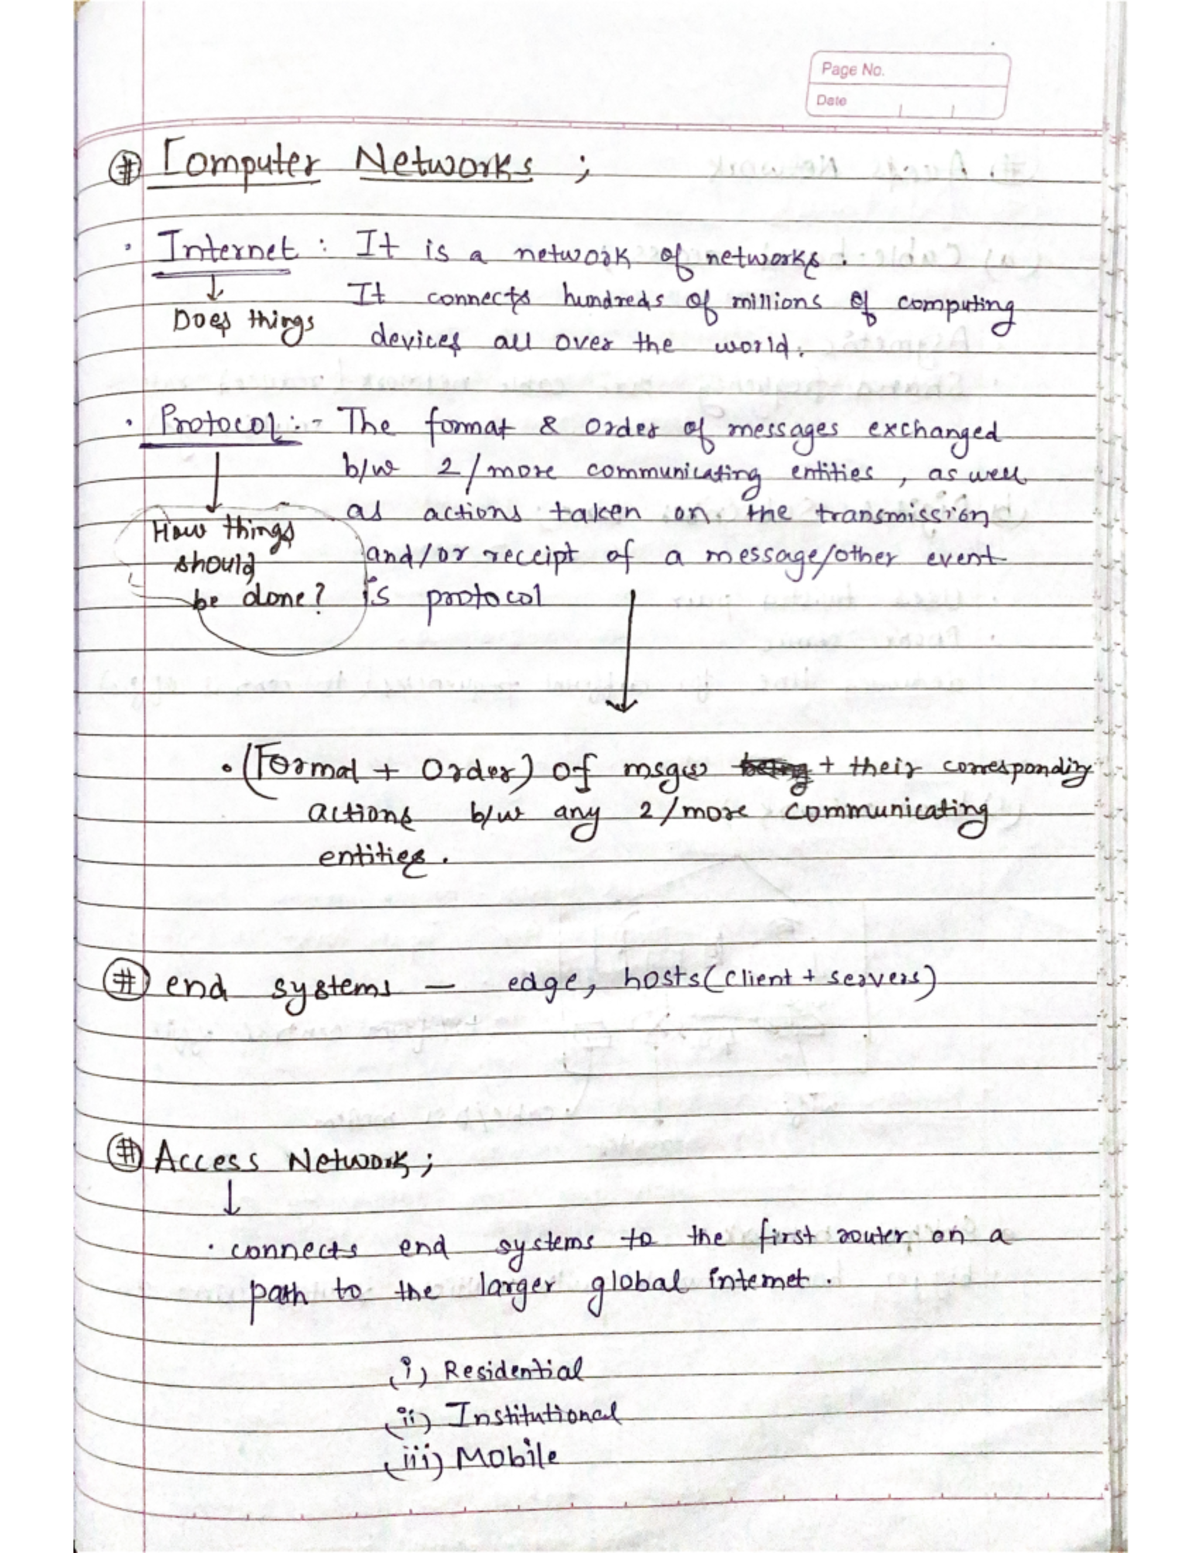 Page No.
Date
# Computer Networks ;
· Internet : It is a network of networks.
↓ It connects hundreds of millions of computing
Does things devices all over the world.
· Protocol :- The format & order of messages exchanged
b/w 2/more communicating entities, as well
as actions taken on the transmission
How things and/or receipt of a message/other event
should
be done? is protocol
• (Format + Order) of msgs + their corresponding
actions b/w any 2/more communicating
entities.
# end systems — edge, hosts (client + servers)
# Access Network ;
↓
· connects end systems to the first router on a
path to the larger global internet.
(i) Residential
(ii) Institutional
(iii) Mobile